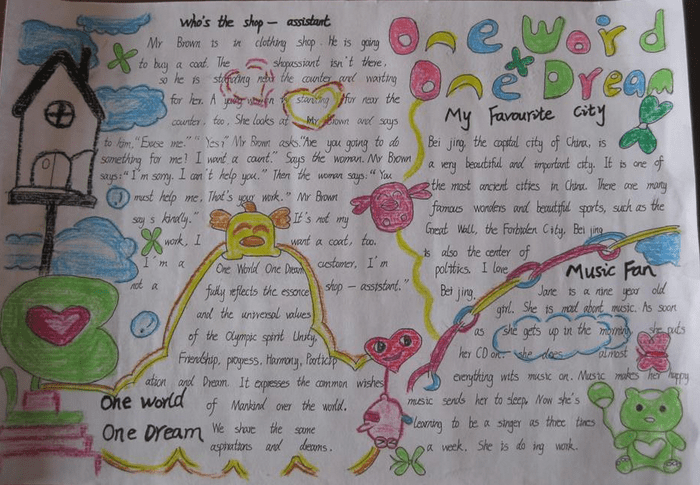 Who's the shop - assistant
Mr Brown is in clothing shop. He is going
to buy a coat. The shopassisant isn't there,
so he is standing near the counter and waiting
for her. A young woman is standing for near the
counter, too. She looks at Mr Brown and says
to him, "Excuse me." "Yes?" Mr Brown asks. "Are you going to do
something for me? I want a count." Says the woman. Mr Brown
says: "I'm sorry. I can't help you." Then the woman says: "You
must help me, That's your work." Mr Brown
say s kindly." It's not my
work, I want a coat, too.
I'm a customer, I'm
not a shop - assistant."
One World
One Dream
My Favourite City
Bei jing, the capital city of China, is
a very beautiful and important city. It is one of
the most ancient cities in China. There are many
famous wonders and beautiful sports, such as the
Great Wall, the Forbiden City. Bei jing
is also the center of
politics. I love
Bei jing.
Music Fan
Jane is a nine year old
girl. She is mad about music. As soon
as she gets up in the morning, she puts
her CD on. she does almost
everything wits music on. Music makes her happy
music sends her to sleep. Now she's
learning to be a singer as three times
a week. She is do ing work.
One World One Dream
fully reflects the essence
and the universal values
of the Olympic spirit Unity,
Friendship, progress, Harmony, Particip
ation and Dream. It expresses the common wishes
of Mankind over the world.
We share the same
aspirations and dreams.
One World
One Dream